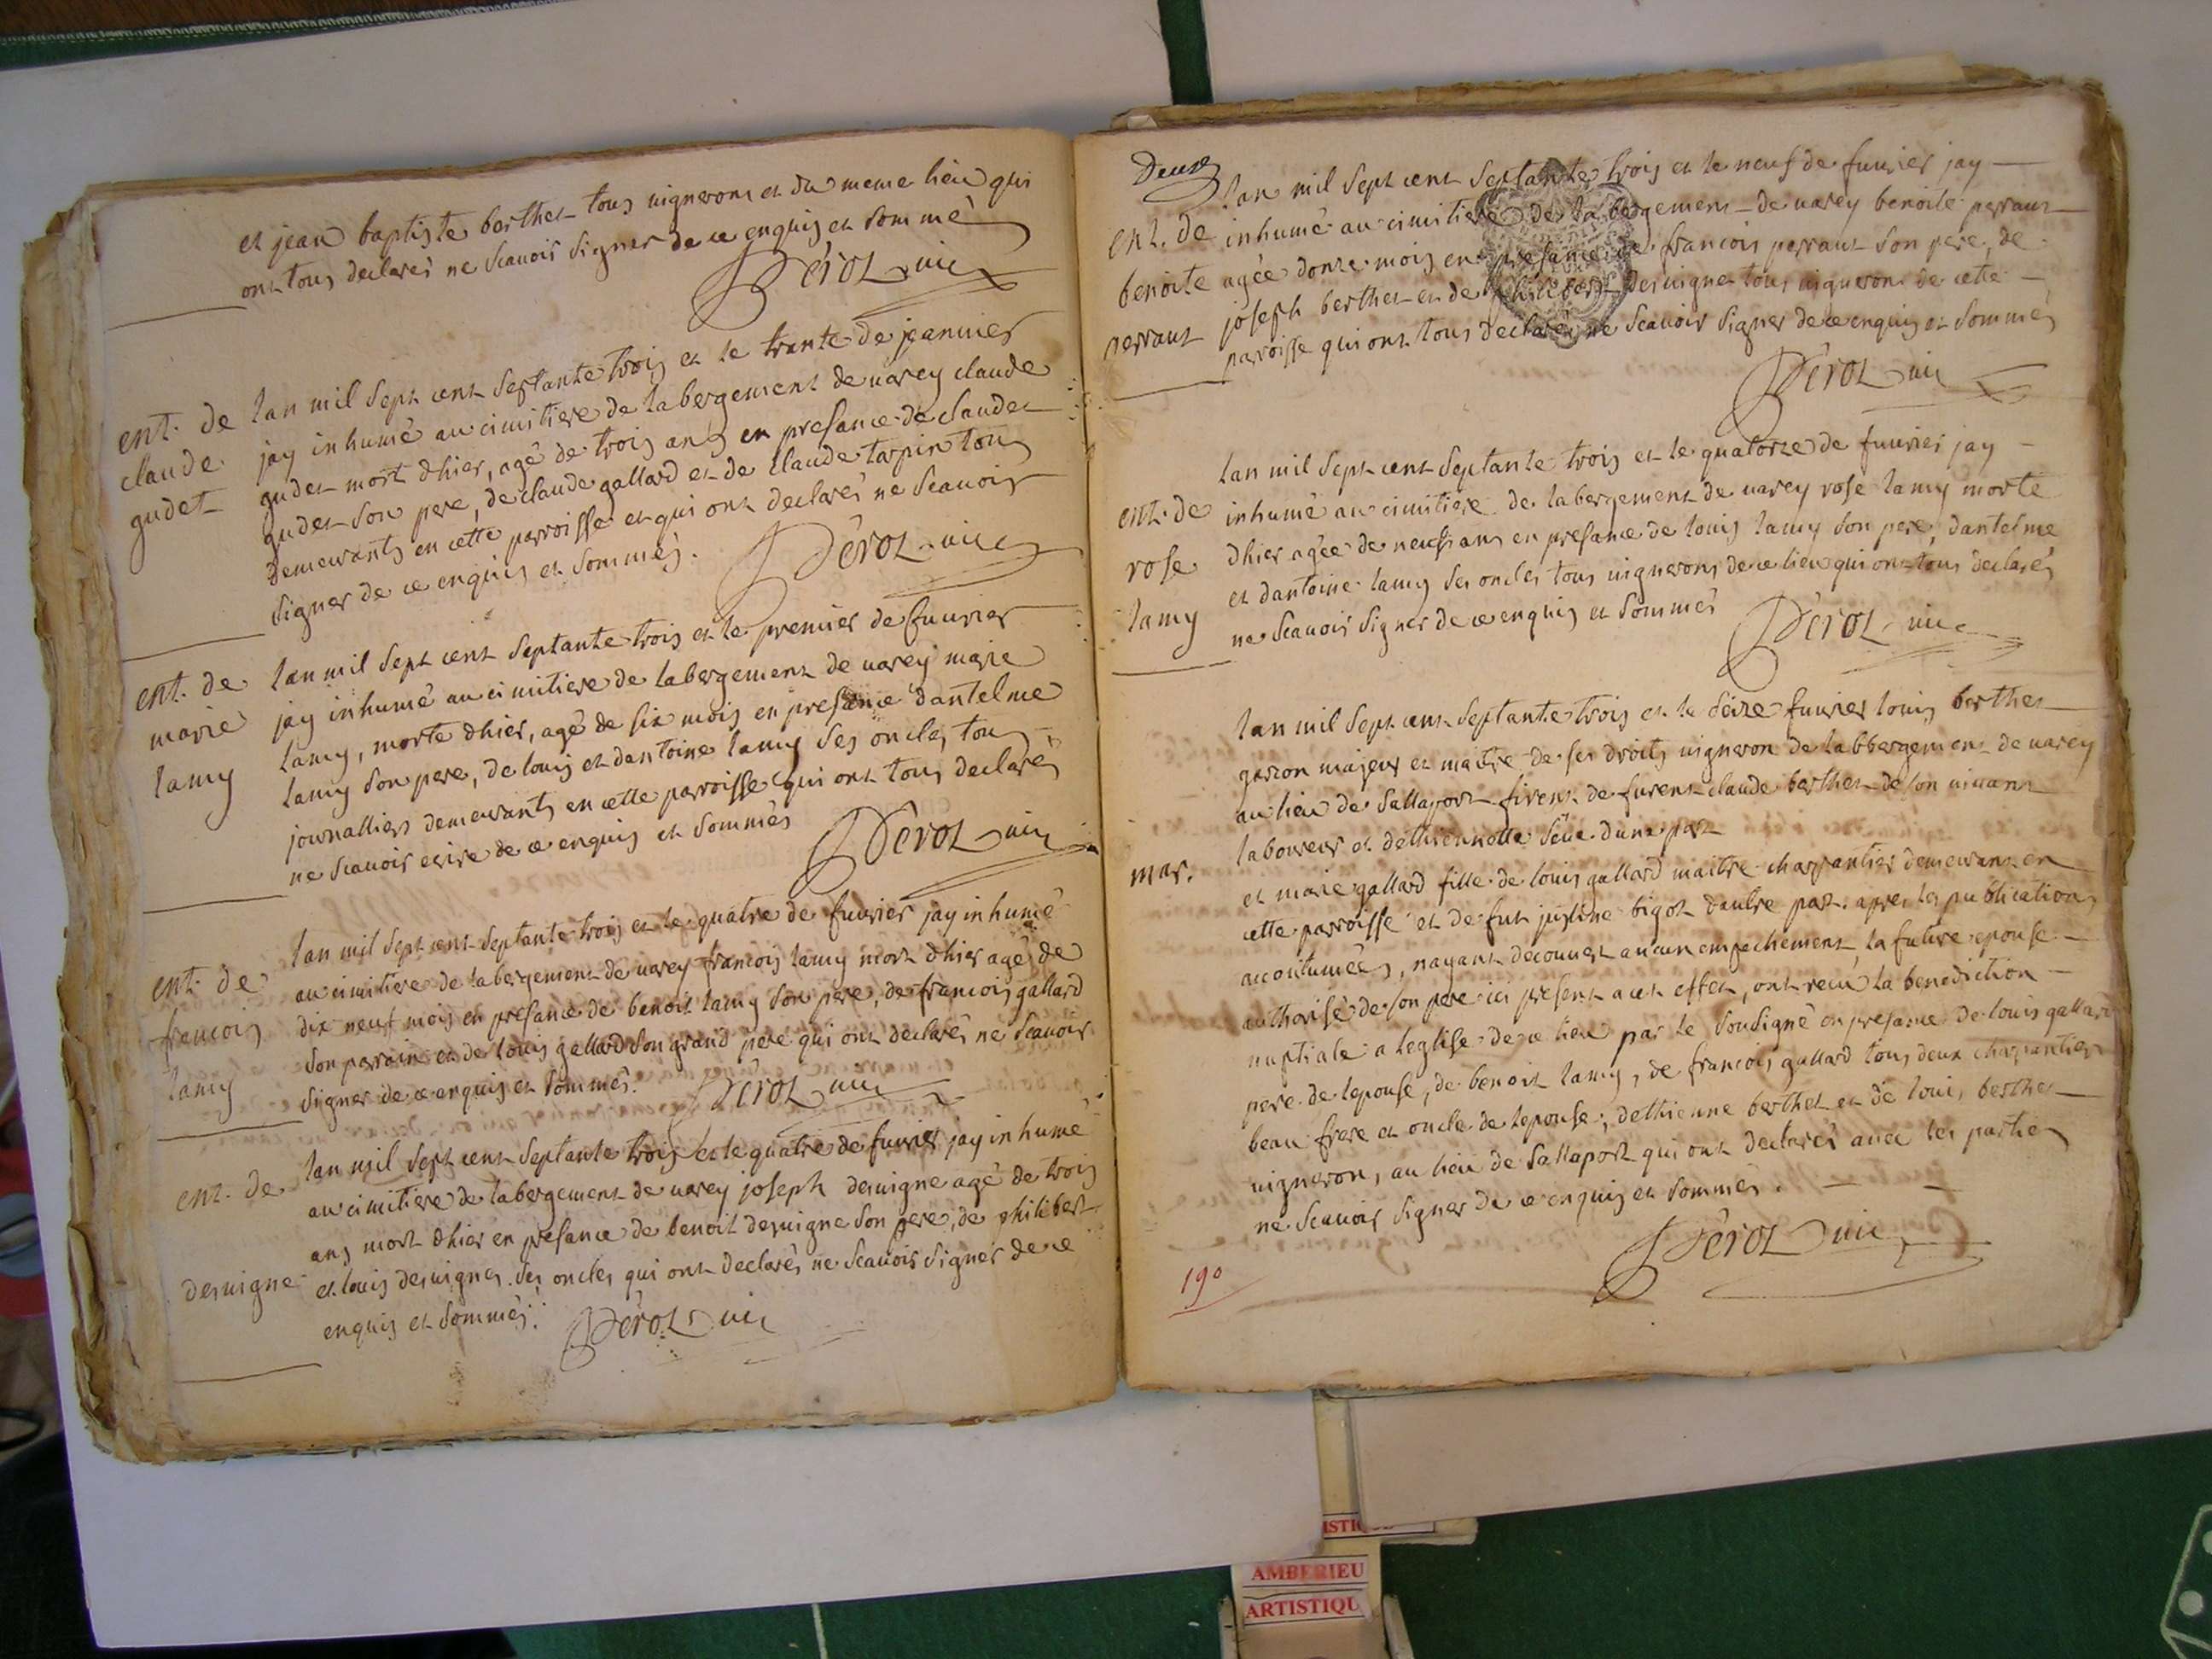 et jean baptiste berthet tous uignerons et du meme lieu qui
ont tous declarés ne scauoir signer de ce enquis et sommé
Dérot uic
ent. de
claude
gudet
lan mil sept cent septante trois et le trante de jeanuier
jay inhumé au cimitiere de labergement de uarey claude
gudet mort dhier, agé de trois ans en presance de claudet
gudet son pere, de claude gallard et de claude tarpin tous
demeurants en cette parroisse et qui ont declarés ne scauoir
signer de ce enquis et sommés.
Dérot uic
ent. de
marie
lamy
lan mil sept cent septante trois et le premier de feurier
jay inhumé au cimitiere de labergement de uarey marie
lamy, morte dhier, agé de six mois en presance dantelme
lamy son pere, de louis et dantoine lamy ses oncles tous
journalliers demeurants en cette parroisse qui ont tous declarés
ne scauoir ecrire de ce enquis et sommés
Dérot uic
ent. de
francois
lamy
lan mil sept cent septante trois et le quatre de feurier jay inhumé
au cimitiere de labergement de uarey francois lamy mort dhier agé de
dix neuf mois en presance de benoit lamy son pere, de francois gallard
son parrain et de louis gallard son grand pere qui ont declarés ne scauoir
signer de ce enquis et sommés.
Dérot uic
ent. de
deruigne
lan mil sept cent septante trois et le quatre de feurier jay inhumé
au cimitiere de labergement de uarey joseph deruigne agé de trois
ans mort dhier en presance de benoit deruigne son pere, de philibert
et louis deruignes ses oncles qui ont declarés ne scauoir signer de ce
enquis et sommés.
Dérot uic
Deux
ent. de
benoite
perraut
lan mil sept cent septante trois et le neuf de feurier jay
inhumé au cimitiere de labergement de uarey benoite perraut
agée donze mois en presance de francois perraut son pere, de
joseph berthet et de philibert deruigne tous uignerons de cette
parroisse qui ont tous declarés ne scauoir signer de ce enquis et sommés
Dérot uic
ent. de
rose
lamy
lan mil sept cent septante trois et le quatorze de feurier jay
inhumé au cimitiere de labergement de uarey rose lamy morte
dhier agée de neuf ans en presance de louis lamy son pere, dantelme
et dantoine lamy ses oncles tous uignerons de ce lieu qui ont tous declarés
ne scauoir signer de ce enquis et sommés
Dérot uic
mar.
lan mil sept cent septante trois et le séize feurier louis berthet
garcon majeur et maitre de ses droits uigneron de labbergement de uarey
au lieu de sallaport de furent claude berthet de son uiuant
laboureur et dethiennette dune part
et marie gallard fille de louis gallard maitre charpantier demeurant en
cette parroisse et de fut justine bigot dautre part. apres les publications
accoutumées, nayant decouuert aucun empechement, la future epouse
authorisé de son pere ici present a cet effet, ont recu la benediction
nuptiale a leglise de ce lieu par le sousigné en presance de louis gallard
pere de lepouse, de benoit lamy, de francois gallard tous deux charpantiers
beau frere et oncle de lepouse, dethienne berthet et de louis berthet
uignerons, au lieu de sallaport qui ont declarés auec les parties
ne scauoir signer de ce enquis et sommés.
Dérot uic
190
AMBERIEU
ARTISTIQU